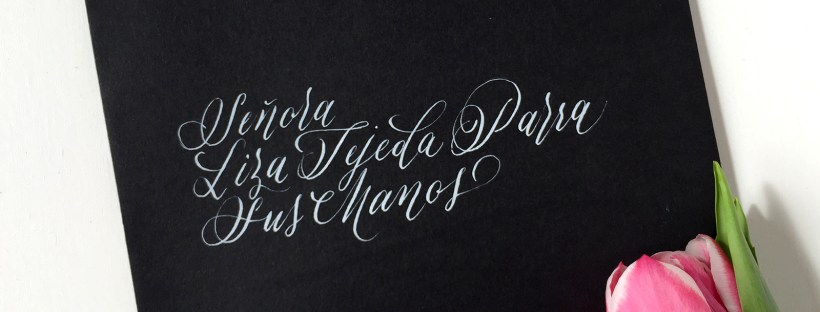 Señora
Liza Tejeda Parra
Sus Manos